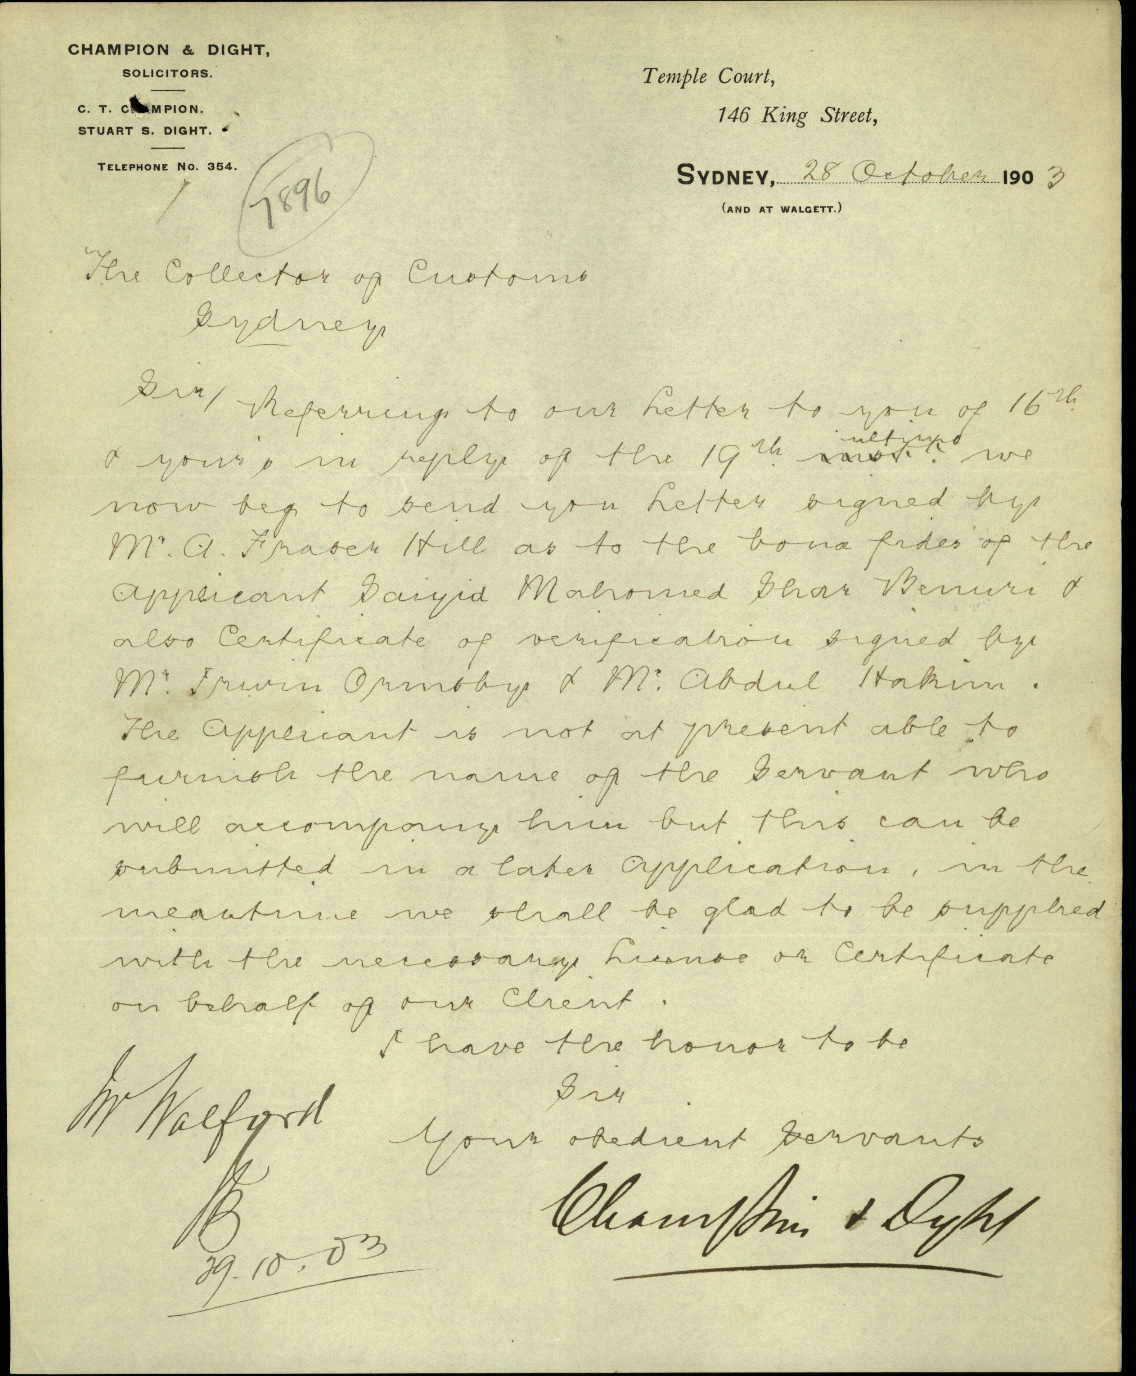 CHAMPION & DIGHT,
SOLICITORS.
C. T. CHAMPION.
STUART S. DIGHT.
TELEPHONE No. 354.
Temple Court,
146 King Street,
SYDNEY, 28 October 1903
(AND AT WALGETT.)
7896
The Collector of Customs
Sydney
Sir/ Referring to our Letter to you of 16th
& your's in reply of the 19th inst. ultimo we
now beg to send you Letter signed by
Mr. A. Fraser Hill as to the bona fides of the
Applicant Saiyid Mahomed Shar Benuri &
also Certificate of verification signed by
Mr. Irwin Ormsby & Mr. Abdul Hakim.
The Applicant is not at present able to
furnish the name of the Servant who
will accompany him but this can be
submitted in a later Application, in the
meantime we shall be glad to be supplied
with the necessary License or Certificate
on behalf of our Client.
I have the honor to be
Sir
Your obedient Servants
Champion & Dight
Mr Walford
29.10.03